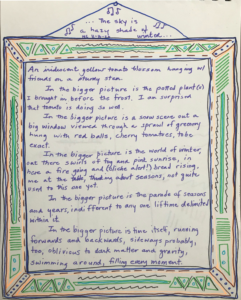 ... The sky is
a hazy shade of
winter...
An iridescent yellow tomato blossom hanging w/
friends on a sturdy stem.
In the bigger picture is the potted plant(s)
I brought in before the frost. I am surprised
that tomato is doing so well.
In the bigger picture is a snow scene out a
big window viewed through a spread of greenery
hung with red balls, cherry tomatoes, to be
exact.
In the bigger picture is the world of winter,
out there swirls of fog and pink sunrise, in
here a fire going and (cliché alert!) bread rising,
me at the table, thinking about seasons, not quite
used to this one yet.
In the bigger picture is the parade of seasons
and years, indifferent to any one lifetime delimited
within it.
In the bigger picture is time itself, running
forwards and backwards, sideways probably,
too, oblivious to dark matter and gravity,
swimming around, filling every moment.